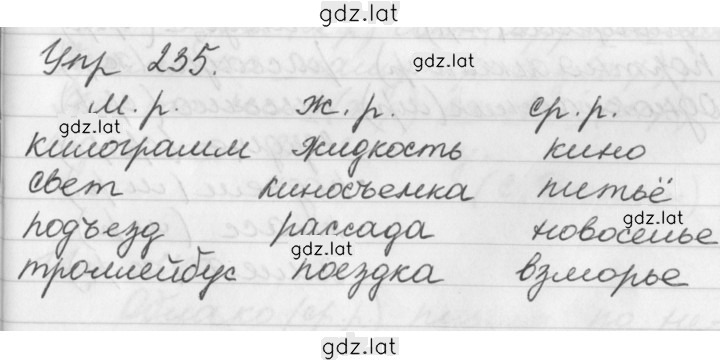 gdz.lat
Упр 235.
gdz.lat
м. р. ж. р. ср. р.
gdz.lat
килограмм жидкость кино
свет киносъемка питьё
gdz.lat
подъезд рассада новоселье
gdz.lat
троллейбус поездка взморье
gdz.lat